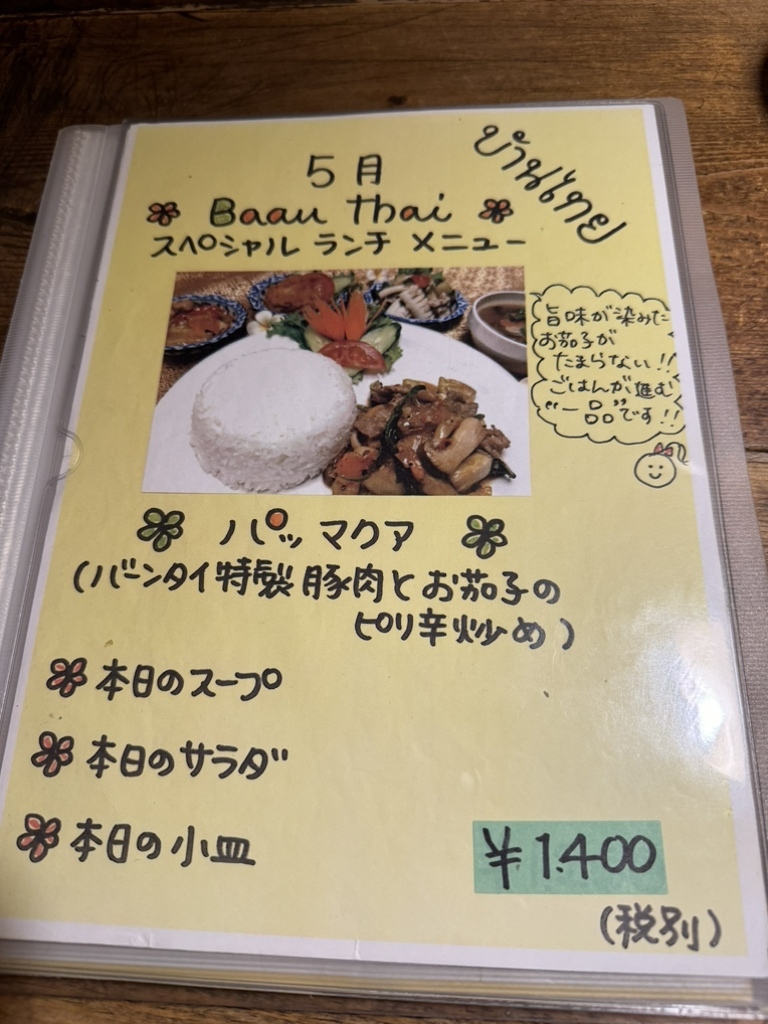 5月
บ้านไทย
Baan thai
スペシャル ランチ メニュー
旨味が染みた
お茄子が
たまらない!!
ごはんが進む
"一品"です!!
パッ マクア
(バーンタイ特製 豚肉とお茄子の
ピリ辛炒め)
本日のスープ
本日のサラダ
本日の小皿
¥1.400
(税別)